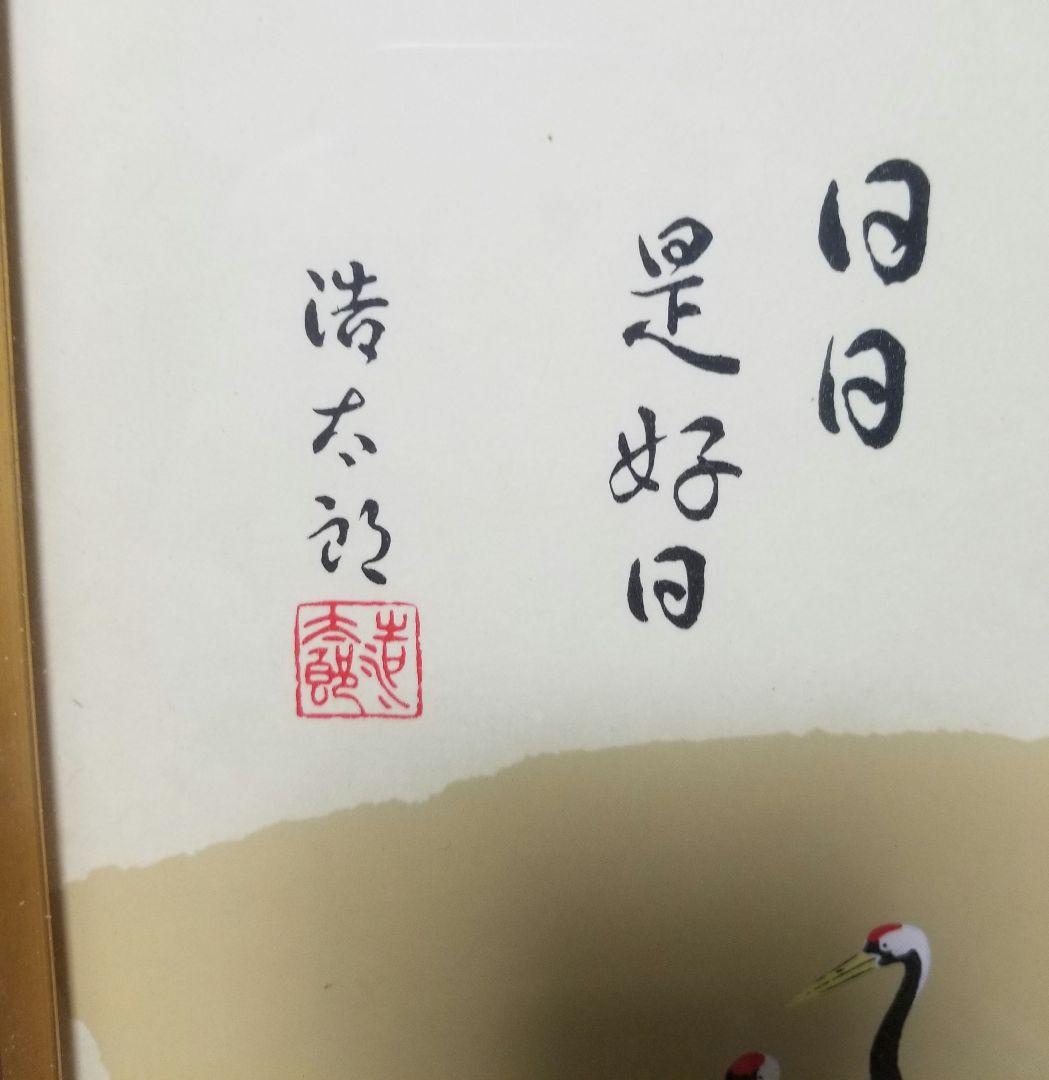 日日
是好日
浩太郎
浩太郎